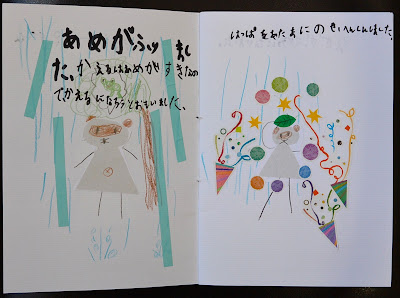 あめがふりまし
た。かえるはあめがすきなの
でかえるになろうとおもいました。
はっぱをあたまにのせへんしんしました。